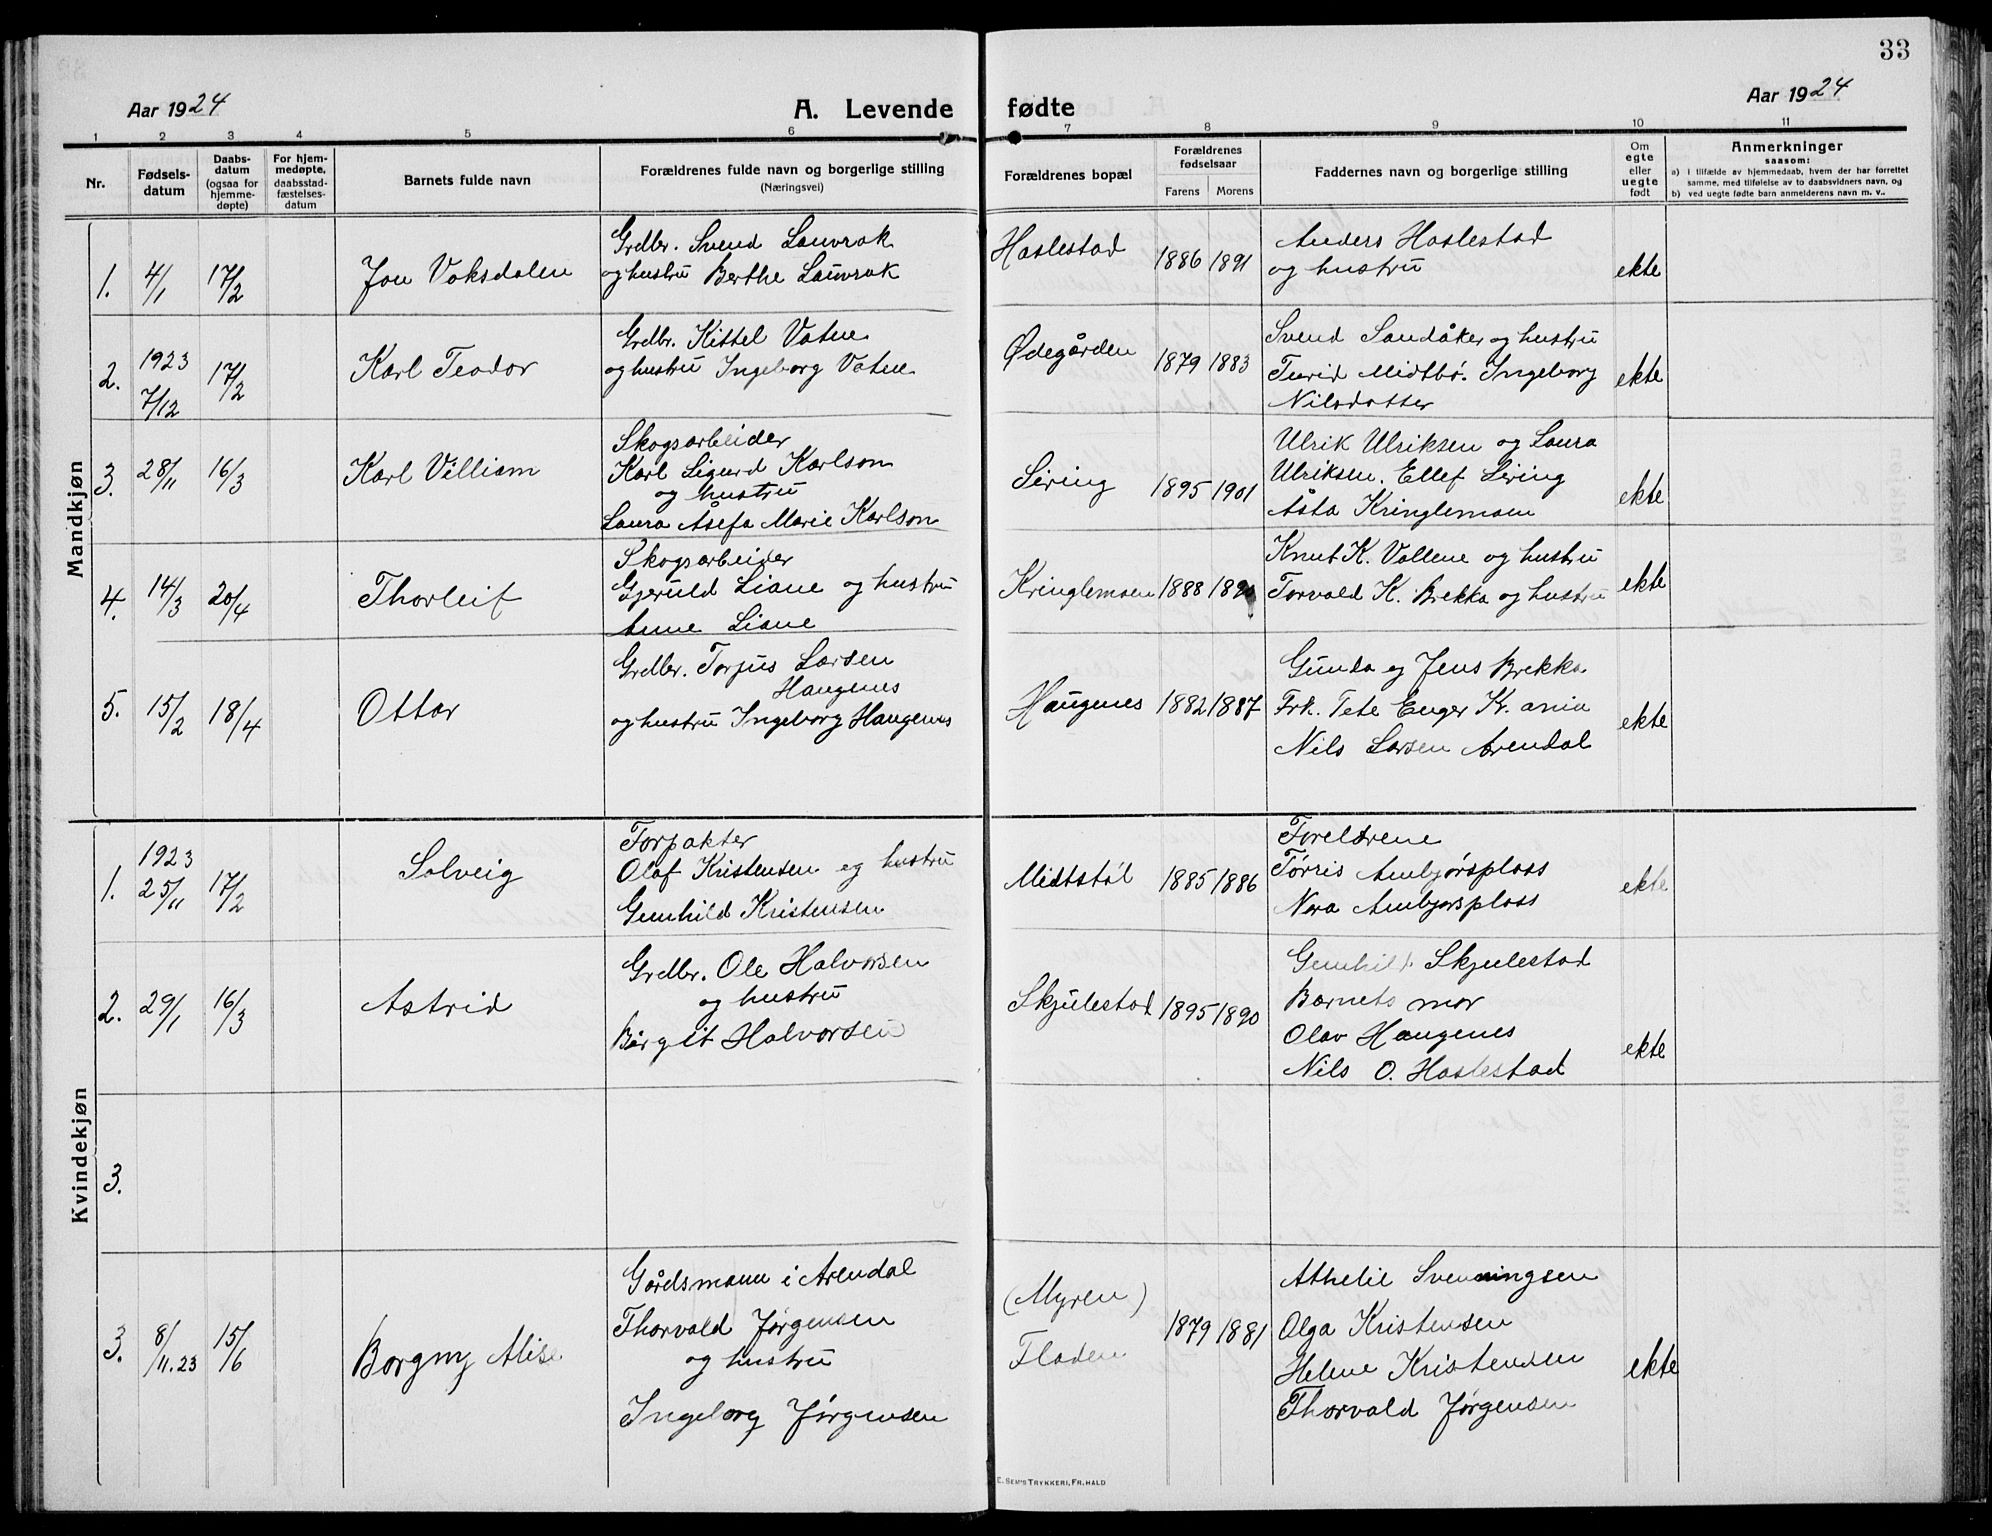 33
Aar 1924
A. Levende fødte
Aar 1924
1 2 3 4 5 6 7 8 9 10 11
Nr.
Fødsels-
datum
Daabs-
datum
(ogsaa for
hjemme-
døpte)
For hjem-
medøpte,
daabsstad-
fæstelses-
datum
Barnets fulde navn
Forældrenes fulde navn og borgerlige stilling
(Næringsvei)
Forældrenes bopæl
Forældrenes
fødselsaar
Farens Morens
Faddernes navn og borgerlige stilling
Om
egte
eller
uegte
født
Anmerkninger
saasom:
a) i tilfælde av hjemmedaab, hvem der har forrettet
samme, med tilføielse av to daabsvidners navn, og
b) ved uegte fødte barn anmelderens navn m. v..
Mandkjøn
1. 4/1 17/2 Jon Voksdalen
Grdbr. Svend Lauvrak
og hustru Berthe Lauvrak
Haslestad 1886 1891
Anders Haslestad
og hustru
ekte
2. 1923
7/12 17/2 Karl Teodor
Grdbr. Kittel Vatne
og hustru Ingeborg Vatne
Ødegården 1879 1883
Svend Sandåker og hustru
Turid Midtbø. Ingeborg
Nilsdatter
ekte
3. 28/11 16/3 Karl Villiam
Skogsarbeider
Karl Sigurd Karlson
og hustru
Laura Åsefa Marie Karlson
Siring 1895 1901
Ulrik Ulriksen og Laura
Ulriksen. Ellef Siring
Åsta Kringlemoen
ekte
4. 14/3 20/4 Thorleif
Skogsarbeider
Gjeruld Liane og hustru
Anne Liane
Kringlemoen 1888 1890
Knut K. Vallene og hustru
Torvald K. Brekka og hustru
ekte
5. 15/2 18/4 Ottar
Grdbr. Torjus Larsen
Haugenes
og hustru Ingeborg Haugenes
Haugenes 1882 1887
Gunda og Jens Brekka
Frk. Tete Enger Kr.ania
Nils Larsen Arendal
ekte
Kvindekjøn
1. 1923
25/11 17/2 Solveig
Forpakter
Olaf Kristensen og hustru
Gunhild Kristensen
Midtstøl 1885 1886
Foreldrene
Tørris Ambjørsplass
Nora Ambjørsplass
ekte
2. 29/1 16/3 Astrid
Grdbr. Ole Halvorsen
og hustru
Birgit Halvorsen
Skjulestad 1895 1890
Gunhild Skjulestad
Barnets mor
Olav Haugenes
Nils O. Haslestad
ekte
3.
3. 8/11.23 15/6 Borgny Alise
Gårdsmann i Arendal
Thorvald Jørgensen
og hustru
Ingeborg Jørgensen
(Myren)
Fladen
1879 1881
Athelie Svenningsen
Olga Kristensen
Helene Kristensen
Thorvald Jørgensen
ekte
E. SEM'S TRYKKERI, FR.HALD